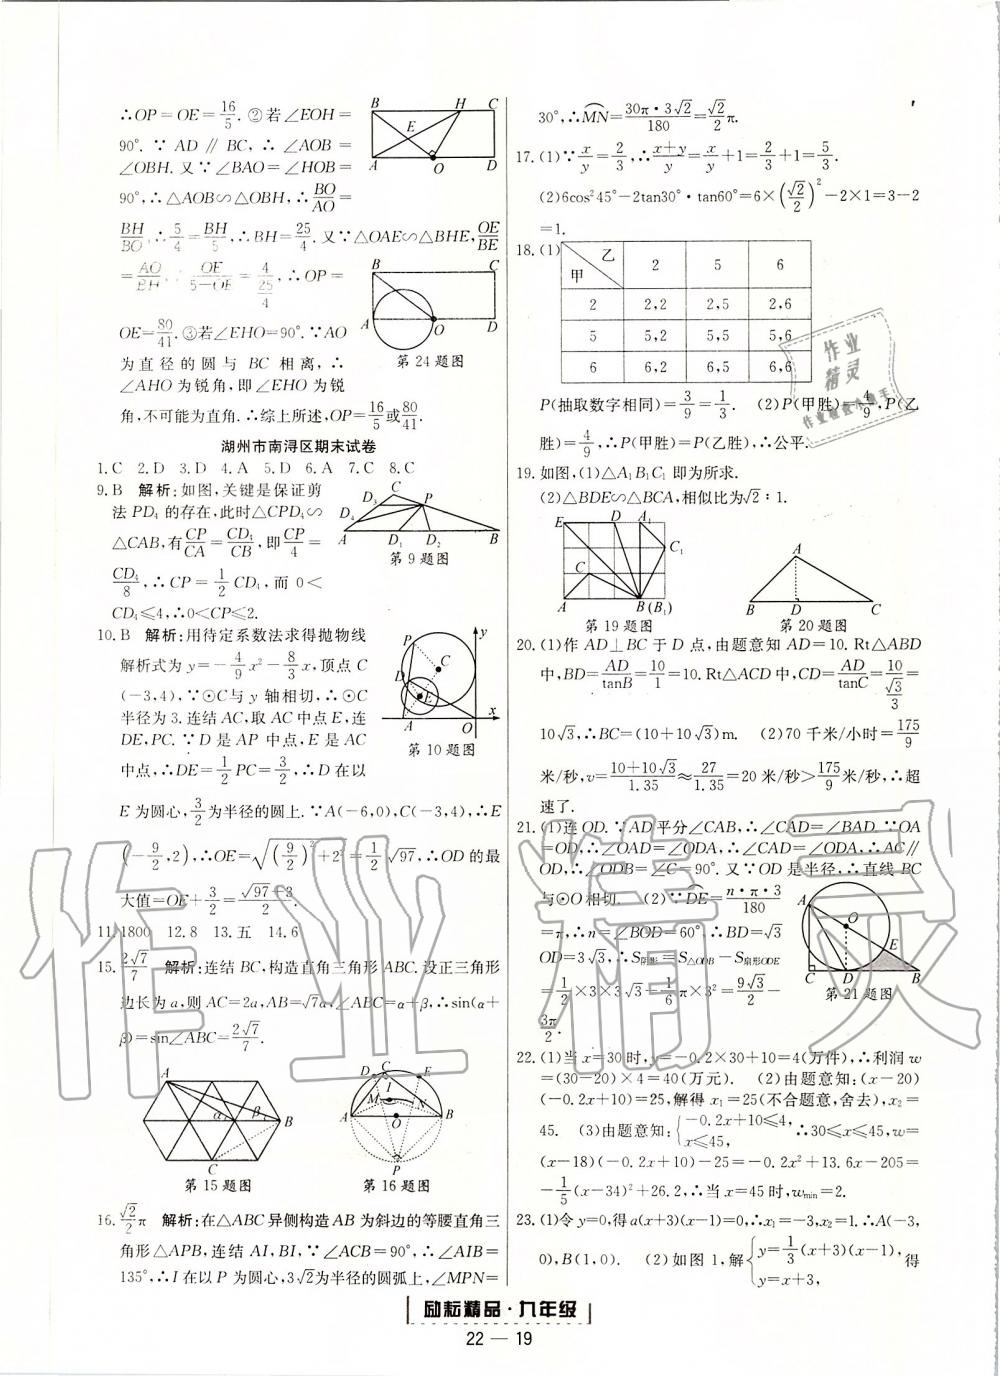 ∴OP=OE=16/5. ②若∠EOH=
90°. ∵ AD ∥ BC, ∴ ∠AOB =
∠OBH. 又∵∠BAO=∠HOB=
90°,∴△AOB∽△OBH,∴BO/AO=
BH/BO,∴5/4=BH/5,∴BH=25/4. 又∵△OAE∽△BHE,OE/BE
=AO/BH, OE/(5-OE)=4/(25/4), ∴OP=
OE=80/41. ③若∠EHO=90°. ∵AO
为直径的圆与 BC 相离, ∴
∠AHO为锐角,即∠EHO为锐
角,不可能为直角. ∴综上所述,OP=16/5或80/41.
B H C
E
A O D
B C
A O D
第24题图
湖州市南浔区期末试卷
1. C 2. D 3. D 4. A 5. D 6. A 7. C 8. C
9. B 解析:如图,关键是保证剪
法PD₄的存在,此时△CPD₄∽
△CAB,有CP/CA=CD₄/CB,即CP/4=
CD₄/8,∴CP=1/2CD₄,而 0<
CD₄≤4,∴0<CP≤2.
D₃ C P
D₄
A D₁ D₂ B
第9题图
10. B 解析:用待定系数法求得抛物线
解析式为y=-4/9x²-8/3x,顶点C
(-3,4),∵⊙C与y轴相切,∴⊙C
半径为3. 连结AC,取AC中点E,连
DE,PC. ∵D是AP中点,E是AC
中点,∴DE=1/2PC=3/2,∴D在以
E为圆心,3/2为半径的圆上. ∵A(-6,0),C(-3,4),∴E
(-9/2,2),∴OE=√((9/2)²+2²)=1/2√97,∴OD的最
大值=OE+3/2=(√97+3)/2.
P y
C
D
E
A O x
第10题图
11. 1800 12. 8 13. 五 14. 6
15. 2√7/7 解析:连结BC,构造直角三角形ABC. 设正三角形
边长为a,则AC=2a,AB=√7a,∠ABC=α+β,∴sin(α+
β)=sin∠ABC=2√7/7.
A
α β B
C
第15题图
D C E
I
M N
A O B
P
第16题图
16. √2/2π 解析:在△ABC异侧构造AB为斜边的等腰直角三
角形△APB,连结AI,BI,∵∠ACB=90°,∴∠AIB=
135°,∴I在以P为圆心,3√2为半径的圆弧上,∠MPN=
30°,∴MN=(30π·3√2)/180=√2/2π.
17. (1)∵x/y=2/3,∴(x+y)/y=x/y+1=2/3+1=5/3.
(2)6cos²45°-2tan30°·tan60°=6×(√2/2)²-2×1=3-2
=1.
18. (1)
乙 甲 2 5 6
2 2,2 2,5 2,6
5 5,2 5,5 5,6
6 6,2 6,5 6,6
P(抽取数字相同)=3/9=1/3. (2)P(甲胜)=4/9,P(乙
胜)=4/9,∴P(甲胜)=P(乙胜),∴公平.
19. 如图,(1)△A₁B₁C₁即为所求.
(2)△BDE∽△BCA,相似比为√2∶1.
E D A₁
C₁
C
A B(B₁)
第19题图
A
B D C
第20题图
20. (1)作AD⊥BC于D点,由题意知AD=10. Rt△ABD
中,BD=AD/tanB=10/1=10. Rt△ACD中,CD=AD/tanC=10/(√3/3)=
10√3,∴BC=(10+10√3)m. (2)70千米/小时=175/9
米/秒,v=(10+10√3)/1.35≈27/1.35=20米/秒>175/9米/秒,∴超
速了.
21. (1)连OD. ∵AD平分∠CAB,∴∠CAD=∠BAD. ∵OA
=OD,∴∠OAD=∠ODA,∴∠CAD=∠ODA,∴AC∥
OD,∴∠ODB=∠C=90°. 又∵OD是半径,∴直线BC
与⊙O相切. (2)∵DE=(n·π·3)/180
=π,∴n=∠BOD=60°,∴BD=√3
OD=3√3,∴S阴影=S△ODB-S扇形ODE
=1/2×3×3√3-1/6π×3²=9√3/2-
3π/2.
A
O
E
C D B
第21题图
22. (1)当x=30时,y=-0.2×30+10=4(万件),∴利润w
=(30-20)×4=40(万元). (2)由题意知:(x-20)
(-0.2x+10)=25,解得x₁=25(不合题意,舍去),x₂=
45. (3)由题意知:{-0.2x+10≤4, x≤45, ∴30≤x≤45,w=
(x-18)(-0.2x+10)-25=-0.2x²+13.6x-205=
-1/5(x-34)²+26.2,∴当x=45时,wmin=2.
23. (1)令y=0,得a(x+3)(x-1)=0,∴x₁=-3,x₂=1. ∴A(-3,
0),B(1,0). (2)如图1,解{y=1/3(x+3)(x-1), y=x+3, 得
励耘精品·九年级
22 — 19
作业精灵
作业
精灵
作业检查小助手